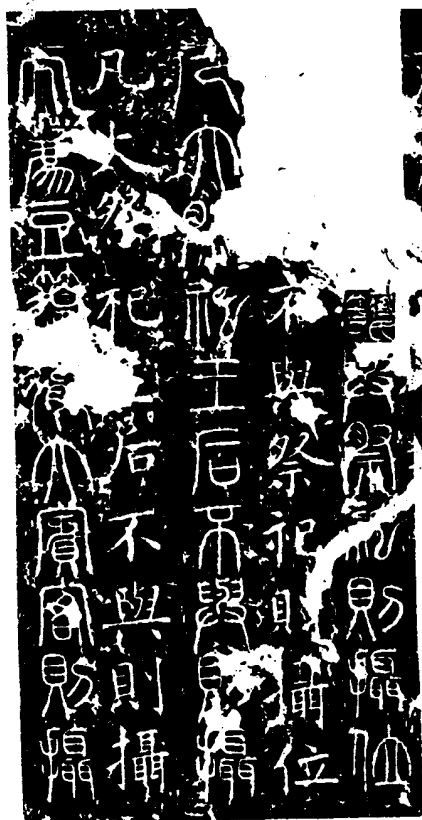 與祭祀則攝位
不與祭祀則攝位
凡大祭祀王后不與則攝
凡大祭祀后不與則攝
而薦豆籩徹大賓客則攝